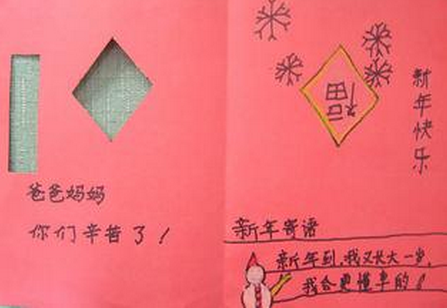 爸爸妈妈
你们辛苦了！
福
新年快乐
新年寄语
新年到，我又长大一岁，
我会更懂事的！